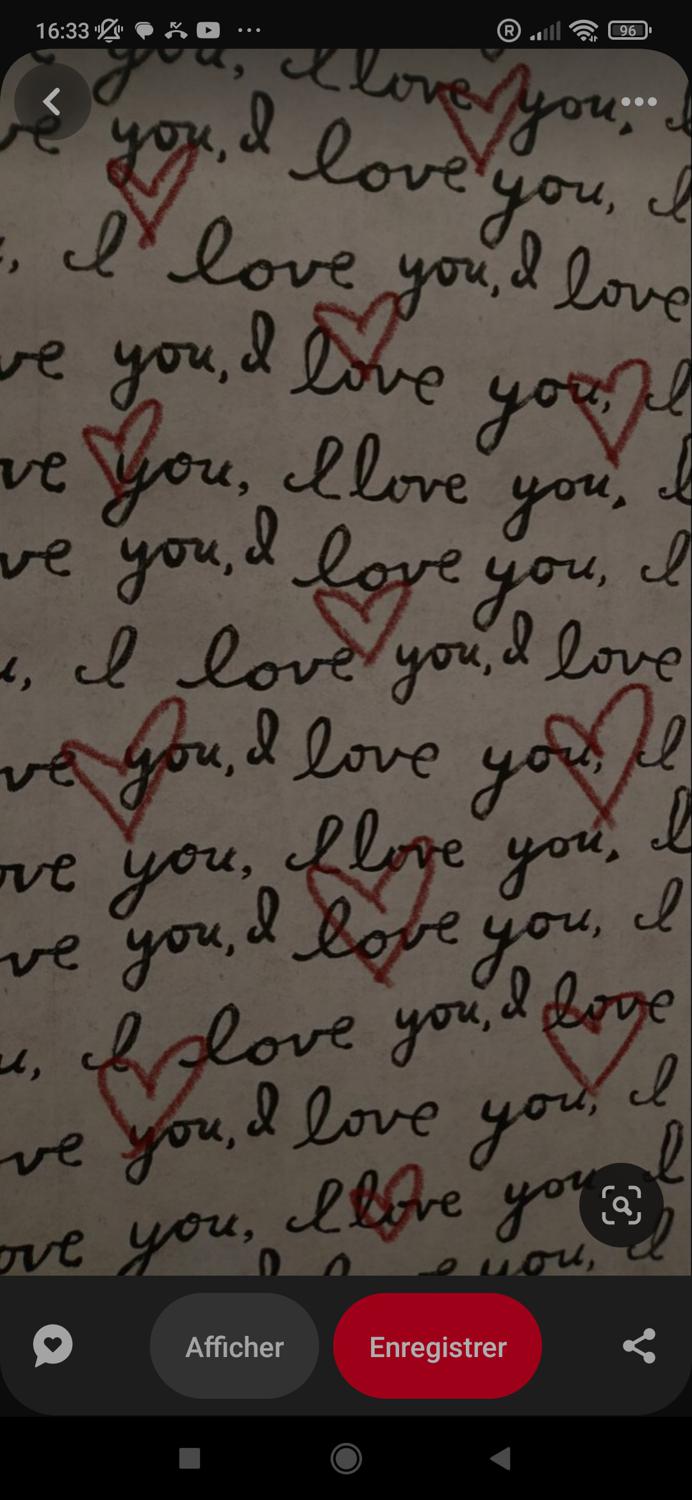 16:33
R
96
you, I love you,
ve you, I love you, I
, I love you, I love
ve you, I love you, I
ve you, I love you,
ve you, I love you, I
u, I love you, I love
ve you, I love you, I
ove you, I love you, I
ve you, I love you, I
u, I love you, I love
ve you, I love you, I
ove you, I love you, I
you,
Afficher
Enregistrer